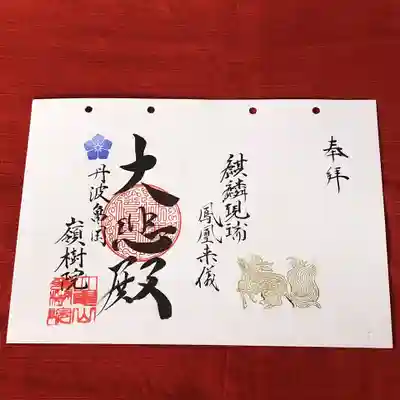 奉拝
麒麟現瑞
鳳凰来儀
大悲殿
丹波亀田
嶺樹院